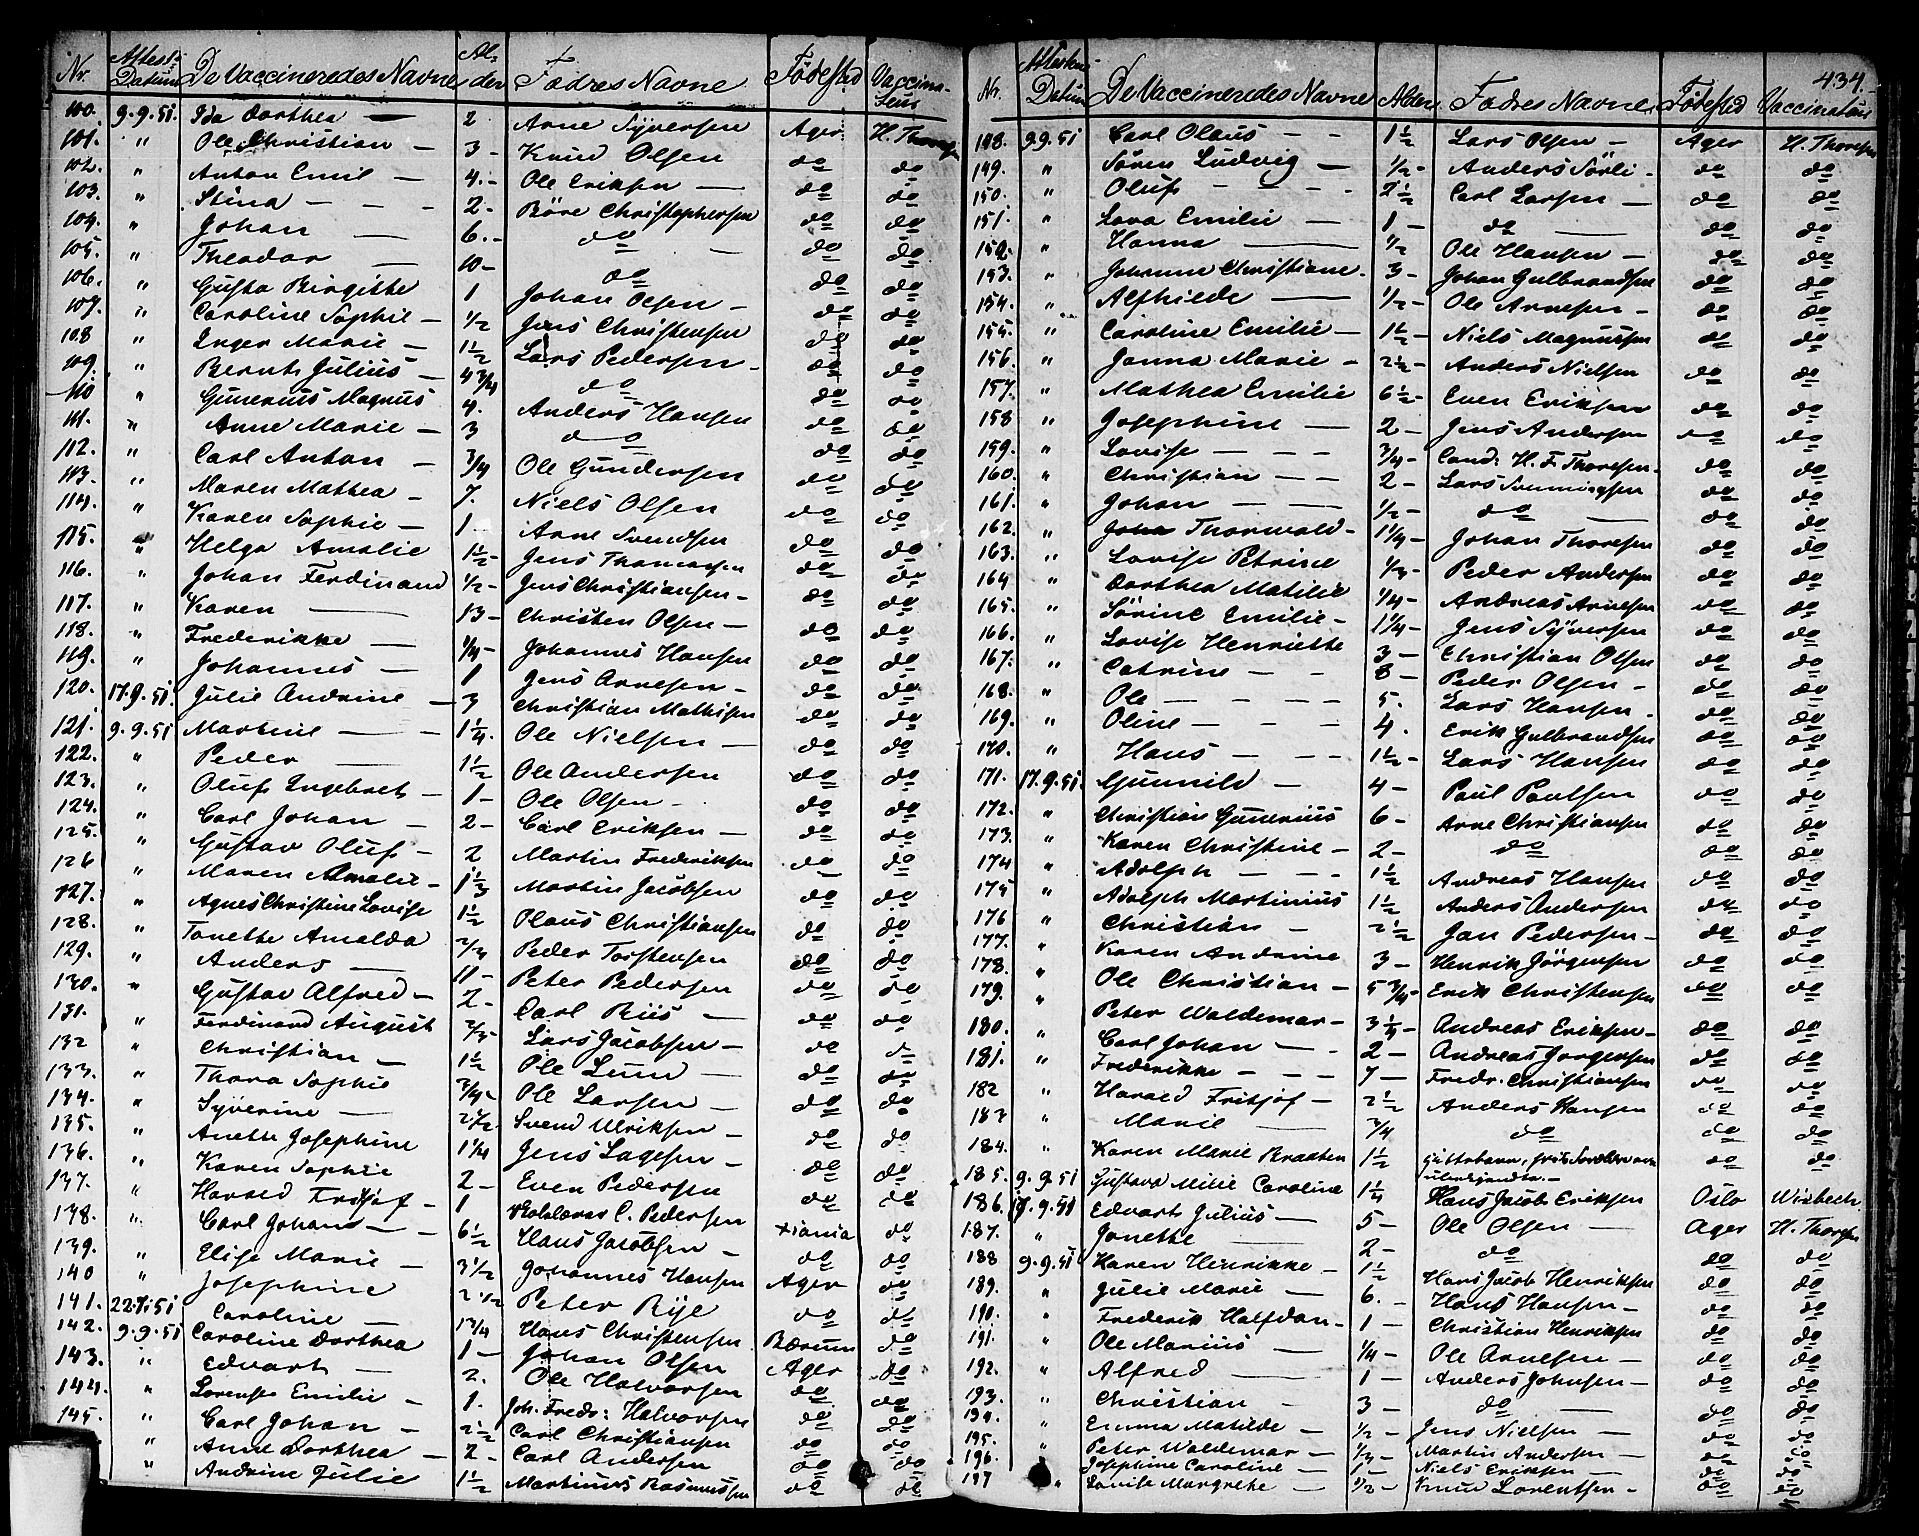 Nr. Attest. Datum De Vaccineredes Navne Alder Fædres Navne Födested Vaccinateur
100. 9.9.51. Ida Dorthea — 2 Arne Syversen Ager H. Thoresen
101. " Ole Christian — 3 - Knud Olsen do do
102. " Anton Emil — 4. - Ole Eriksen — do do
103. " Stina - - - 2 - Böre Christophersen do do
104. " Johan — 6. - do — do do
105. " Theodor — 10 - do do do
106. " Gusta Birgithe 1 Johan Olsen - do do
107. " Caroline Sophie — 1/2 Jens Christensen do do
108 " Inger Marie — 1 1/2 Lars Pedersen - do do
109. " Bernt Julius — 4 3/4 do do do
110 " Gunerius Magnus 4. Anders Hansen do do
111. " Anne Marie — 3 do do do
112. " Carl Anton — 3/4 Ole Gundersen do do
113. " Maren Mathea - 7. Niels Olsen do do
114. " Karen Sophie — 1. Arne Svendsen do do
115. " Helga Amalie 1 1/2 - Jens Thomasen do do
116. " Johan Ferdinand 1/2 - Jens Christiansen - do do
117. " Karen — 13 - Christen Olsen — do do
118. " Frederikke — 1/4 - Johannes Hansen do do
119. " Johannes — 1 Jens Arnesen - do do
120. 17.9.51. Julie Andrine — 3 Christian Mathisen do do
121. 9.9.51 Martine — - 1 1/4. Ole Nielsen — do do
122. " Peder — 1 1/2 Ole Andersen do do
123. " Oluf Ingebret - 1 - Ole Olsen - do do
124. " Carl Johan — 2 - Carl Eriksen — do do
125. " Gustav Oluf - 2 Martin Frederiksen do do
126 " Maren Amalie - 1 1/3 Martin Jacobsen do do
127. " Agnes Christine Lovise 1 1/2 Olaus Christiansen do do
128. " Tonette Amalda 2/4 Peder Torstensen do do
129. " Anders — 11 - Peter Pedersen do do
130. " Gustav Alfred - 2 - Carl Riis — do do
131. " Ferdinand August 2/3 - Lars Jacobsen - do do
132 " Christian — 1 1/2 Ole Lund — do do
133. " Thora Sophie 3/4 - Ole Larsen — do do
134. " Syverine — 2 1/2 Svend Ulriksen - do do
135. " Anette Josephine 1 1/4 Jens Lagesen - do do
136. " Karen Sophie 2 - Even Pedersen do do
137. " Harald Fritjof - 1 Skolelærer C. Pedersen do do
138. " Carl Johan — 6 1/2 Hans Jacobsen - Xiania do
139. " Elise Marie — 3 1/2 Johannes Hansen do do
140 " Josephine 2 1/2 Peter Rije Ager do
141. 22.7.51 Caroline — 1 3/4 Hans Christensen do do
142. 9.9.51 Caroline Dorthea 1 - Johan Olsen Bærum do
143. " Edvart — 2. Ole Halvorsen Ager do
144. " Lorense Emilie — 1. Joh. Fredr: Halvorsen do do
145. " Carl Johan — 2 1/2 Carl Christiansen do do
" Anne Dorthea — 2 - Carl Andersen do do
" Andrine Julie 1 1/2 Martinus Rasmussen do do
434.
Nr. Attestens Datum De Vaccineredes Navne Alder Fædres Navne Födested Vaccinateur
148. 9.9.51 Carl Olaus - - 1 1/2 Lars Olsen — Ager H. Thoresen
149. " Sören Ludvig — 1/2 - Anders Sörli - do do
150. " Oluf - - - 2 1/2 Carl Larsen — do do
151. " Lova Emilie — 1 — do — do do
152. " Hanna — 1/2 Ole Hansen — do do
153. " Johanne Christiane. 3 - Johan Gulbrandsen do do
154. " Alfhilde — 1/2 - Ole Arnesen - do do
155. " Caroline Emilie — 1 1/2 - Niels Magnussen do do
156. " Janna Marie - 2 1/2 - Anders Nielsen do do
157. " Mathea Emilie 6 1/2 - Even Eriksen do do
158 " Josephine — 2 - Jens Andersen do do
159. " Lovise - - - 3/4 - Cand: H. F. Thoresen. do do
160. " Christian — - 2 - Lars Svenningsen do do
161. " Johan - — 1/2 - do — do do
162. " Thorwald - 1 1/4 - Johan Thoresen do do
163. " Lovise Petrine 1/3 - Peder Andersen do do
164 " Dorthea Matilie 1/4 - Andreas Arnesen do do
165. " Sörine Emilie - 1 1/4 - Jens Syversen do do
166. " Lovise Henriette 3 - Christian Olsen do do
167. " Catrine — - 8 - Peder Olsen - do do
168. " Ole — - - - 5. Lars Hansen - do do
169. " Oline - - - 4. Erik Gulbrandsen do do
170. " Hans - - - 1 1/2 - Lars Hansen do do
171. 17.9.51. Gunnild — 4 - Paul Paulsen do do
172. " Christian Gunerius 6 - Arne Christiansen do do
173. " Karen Christine - 2 - do do do
174 " Adolph - - - 1 1/2 Andreas Hansen do do
175 " Adolph Martinius 1 1/2 Anders Andersen do do
176 " Christian - 2 1/2 Jan Pedersen - do do
177. " Karen Andrine 3 — Henrik Jörgensen do do
178. " Ole Christian - 5 3/4 - Erik Christensen do do
179. " Peter Waldemar - 3 1/3 - Andreas Eriksen - do do
180. " Carl Johan — - 2 - Andreas Jorgensen do do
181. " Frederikke - - - 7 — Fredr. Christiansen do do
182 " Harald Fritjof - 2 1/2 Anders Hansen do do
183 " Marie — 3/4 do do do
184. " Karen Marie Braaten 1 1/2 do do
185. 9.9.51 Gustava Milie Caroline 1 1/4 Hans Jacob Eriksen Oslo Wisbech
186. 17.9.51 Edvart Julius — 5 - Ole Olsen — Ager H. Thoresen
187. " Jonette — 2 - do do do
188 9.9.51 Karen Henrikke - 1 1/2 Hans Jacob Henriksen do do
189. " Julie Marie — 6. - Hans Hansen - do do
190. " Frederik Halfdan - 1 - Christian Henriksen do do
191. " Ole Marius — 1/4 - Ole Arnesen — do do
192. " Alfred — 1 - Anders Johnsen - do do
193. " Christian — 3 — do — do do
194. " Emma Matilde - 1/2 - Jens Nielsen — do do
195. " Peter Waldemar — 1/3 - Martin Andersen — do do
196. " Josephine Caroline — 1 - Niels Eriksen — do do
197 " Lovise Margrethe — 1/2 - Knud Lorentsen - do do